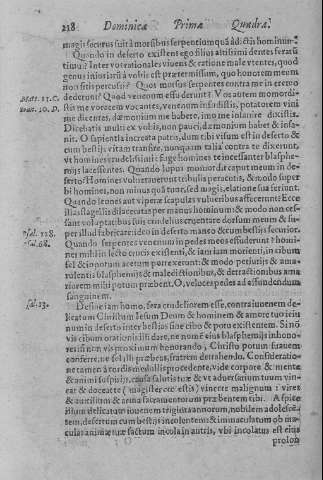 218 Dominicæ Primæ Quadra.
magis securus fuit à morsibus serpentiũ quã à dictis hominum.
Quando in deserto existent ego filius altissimi dentes
timui? Inter vot rationales viuens & ratione malè vtentes, quod
genus iniuriarũ à vobis est prætermissum, quo honorem meum
non sitis percussi? Quos morsus serpentes contra me in eremo
Mat. 11. C. dederunt? Quod venenum effuderunt? Vos autem momordi-
Ioan. 10. D. stis me voracem vocantes, venenum infudistis, potatorem vini
me dicentes, dæmonium me habere, imo me insanire dixistis.
Dicebatis multi ex vobis, non pauci, dæmonium habet & insa-
nit. O sapientia increata patris, dum tibi visum est in deserto &
cum bestijs vitam transire, nunquam talia contra te dixerunt,
vt homines crudelissimi: fuge homines te incessanter blasphe-
mijs lacessentes. Quando lupus momordit caput meum in de-
serto? Homines vulnerauerunt tribulis peractis, & modo super
bi homines, non minus quã tunc, sed magis, elatione sua feriunt.
Quando leones aut viperæ scapulas vulneribus affecerunt? Ecce
illas flagellis dilaceratas per manus hominum: & modo non ces-
sant voluptatibus suis crudeles aggrauare dorsum meum & su-
psal. 128. per illud fabricare: ideo in deserto manto & cum bestijs securior.
psal. 68. Quando serpentes venenum in pedes meos effuderunt? homi-
nes mihi in lecto crucis existenti, & iam iam morienti, in cibum
fel & in potum acetum porrexerunt: & modo periurijs & ama-
rulentis blasphemijs & maledictionibus, & detractionibus ama
riorem mihi potum præbent. O, veloces pedes ad effundendum
sanguinem.
sal. 13. Desine iam homo, fera crudelior esse, contra iuuenem de-
licatum Christum Iesum Deum & hominem & amore tuo ieiu
num in deserto inter bestias sine cibo & potu existentem. Si nõ
vis cibum orationis illi dare, ne nomẽ eius blasphemijs inhono-
res: si nõ vis proximum honorando, Christo potum suauem
conferre, ne fel illi præbeas, fratrem detrahendo. Consideratio-
ne tamen à cordis medullis procedente, vide corpore & mente
& animi suspirijs, causa salutis tuæ & vt aduersarium tuum vin-
cas & doceat te (magister cum est is) vincere malignum: vires
& auxilium & arma sacramentorum præbentem tibi. Aspice
illum delicatum iuuenem triginta annorum, nobilem adolescẽ-
tem, desertum cum bestijs incolentem: & immaculatum ob ma-
cularum animæ tuæ factum incola in antris, vbi incolatus est eius
prolon